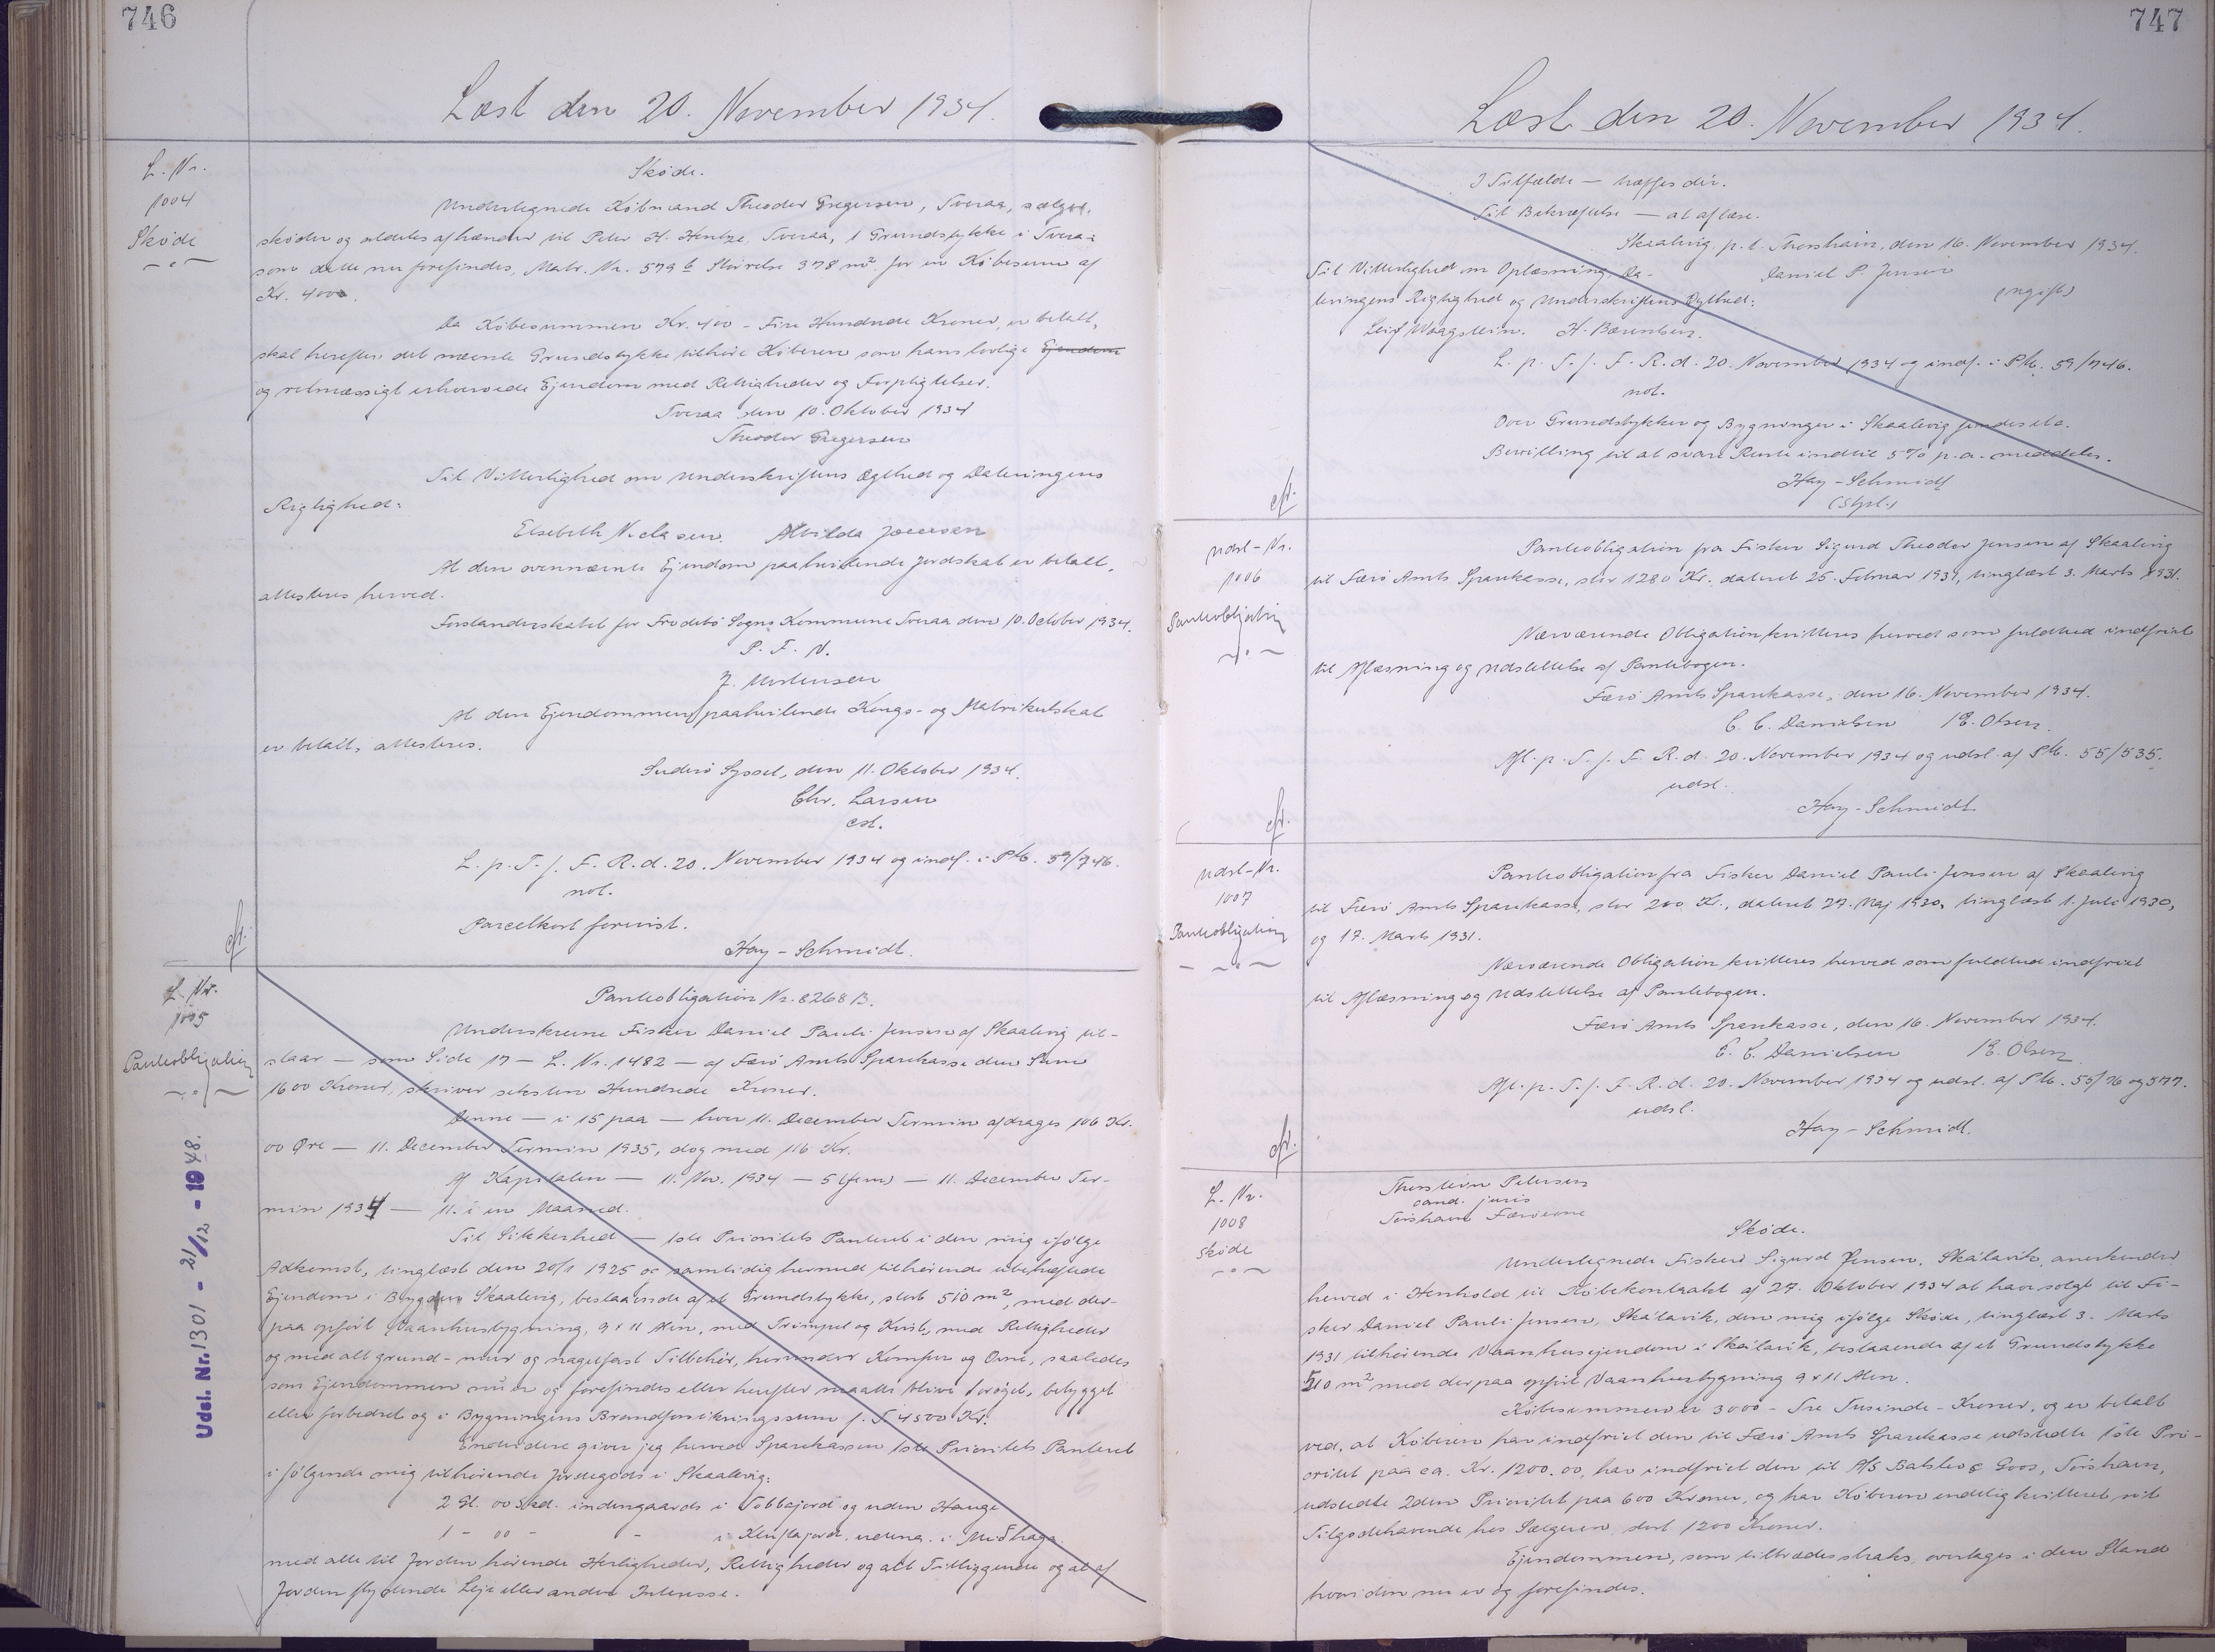 746
Læst den 20. November 1934.
L. Nr.
1004
Skøde
Skøde.
Undertegnede Købmand Theodor Gregersen, Tveraa, sælger,
skøder og aldeles afhænder til Peter H. Hentze, Tveraa, 1 Grundstykke i Tveraa
som dette nu forefindes, Matr. Nr. 579 b Størrelse 378 m² for en Købesum af
Kr. 400.
Da Købesummen Kr. 400 - Fire Hundrede Kroner, er betalt,
skal herefter det nævnte Grundstykke tilhøre Køberen som hans lovlige Ejendom
og retmæssigt erhvervede Ejendom med Rettigheder og Forpligtelser.
Tveraa den 10. Oktober 1934
Theodor Gregersen
Til Vitterlighed om Underskriftens Ægthed og Dateringens
Rigtighed:
Elsebeth Niclasen. Alvilda Joensen
At den ovennævnte Ejendom paahvilende Jordskat er betalt,
attesteres herved.
Forstanderskabet for Frodebø Sogns Kommune Tveraa den 10. October 1934.
P. F. V.
J. Mortensen
At den Ejendommen paahvilende Kongs- og Matrikulskat
er betalt, attesteres.
Suderø Syssel, den 11. Oktober 1934.
Chr. Larsen
cst.
L. p. T. f. F. R. d. 20. November 1934 og indf. i Ptb. 59/746.
not.
Parcelkort forevist.
Hay-Schmidt.
cfr.
L. Nr.
1005
Panteobligation
Panteobligation Nr. 8268 B.
Underskrevne Fisker Daniel Pauli Jensen af Skaalevig til-
staar — som Side 17 — L. Nr. 1482 — af Færø Amts Sparekasse den Sum
1600 Kroner, skriver seksten Hundrede Kroner.
Denne — i 15 paa — hver 11. December Termin afdrages 106 Kr.
00 Øre — 11. December Termin 1935, dog med 116 Kr.
Af Kapitalen — 11. Nov. 1934 — 5 (fem) — 11. December Ter-
min 1934 — 11. i en Maaned.
Til Sikkerhed — 1ste Prioritets Panteret i den mig ifølge
Adkomst, tinglæst den 20/1 1925 og samtidig hermed tilhørende ubehæftede
Ejendom i Bygden Skaalevig, bestaaende af et Grundstykke, stort 510 m², med der-
paa opført Vaanhusbygning, 9 x 11 Alen, med Trimpel og Kvist, med Rettigheder
og med alt grund- mur og nagelfast Tilbehør, herunder Komfur og Ovne, saaledes
som Ejendommen nu er og forefindes eller herefter maatte blive forøget, bebygget
eller forbedret og i Bygningens Brandforsikringssum f. T. 4500 Kr.
Endvidere giver jeg herved Sparekassen 1ste Prioritets Panteret
i følgende mig tilhørende Jordegods i Skaalevig:
2 Gl. 00 Skd. indengaards i Tobbajord og uden Hauge
1 - 00 - - i Kluflajord. udeng. i Miðhaga
med alle til Jorden hørende Herligheder, Rettigheder og alt Tilliggende og al af
Jorden flydende Leje eller anden Interesse.
Udsl. Nr. 1301 - 21/12 - 1948.
747
Læst den 20. November 1934.
I Tilfælde — træffes dér.
Til Bekræftelse — at aflæse.
Skaalevig p. t. Thorshavn, den 16. November 1934.
Til Vitterlighed om Oplæsning, Da- Daniel P. Jensen
teringens Rigtighed og Underskriftens Ægthed: (ugift)
Leif Waagstein. H. Bærentsen.
L. p. T. f. F. R. d. 20. November 1934 og indf. i Ptb. 59/746.
not.
Over Grundstykker og Bygninger i Skaalevig findes etc.
Bevilling til at svare Rente indtil 5% p.a. meddeles.
Hay-Schmidt
(Stpl.)
cfr.
Udsl-Nr.
1006
Panteobligation
Panteobligation fra Fisker Sigurd Theodor Jensen af Skaalevig
til Færø Amts Sparekasse, stor 1280 Kr. dateret 25. Februar 1931, tinglæst 3. Marts 1931.
Nærværende Obligation kvitteres herved som fuldtud indfriet
til Aflæsning og Udslettelse af Pantebogen.
Færø Amts Sparekasse, den 16. November 1934.
C. C. Danielsen / E. Olsen.
Afl. p. T. f. F. R. d. 20. November 1934 og udsl. af Ptb. 55/535.
udsl.
Hay-Schmidt.
cfr.
Udsl-Nr.
1007
Panteobligation
Panteobligation fra Fisker Daniel Pauli Jensen af Skaalevig
til Færø Amts Sparekasse, stor 200 Kr., dateret 27. Maj 1930, tinglæst 1. Juli 1930,
og 17. Marts 1931.
Nærværende Obligation kvitteres herved som fuldtud indfriet
til Aflæsning og Udslettelse af Pantebogen.
Færø Amts Sparekasse, den 16. November 1934.
C. C. Danielsen / E. Olsen
Afl. p. T. f. F. R. d. 20. November 1934 og udsl. af Ptb. 55/76 og 577.
udsl.
Hay-Schmidt.
cfr.
L. Nr.
1008
Skøde
Thorstein Petersen
cand. juris
Tórshavn Færøerne
Skøde.
Undertegnede Fisker Sigurd Jensen, Skálavik, anerkender
herved i Henhold til Købekontrakt af 27. Oktober 1934 at have solgt til Fi-
sker Daniel Pauli Jensen, Skálavik, den mig ifølge Skøde, tinglæst 3. Marts
1931 tilhørende Vaanhusejendom i Skálavik, bestaaende af et Grundstykke
510 m² med derpaa opført Vaanhusbygning 9 x 11 Alen.
Købesummen er 3000 - Tre Tusinde - Kroner, og er betalt
ved, at Køberen har indfriet den til Færø Amts Sparekasse udstedte 1ste Pri-
oritet paa ca. Kr. 1200.00, har indfriet den til A/S Balslev & Goos, Tórshavn,
udstedte 2den Prioritet paa 600 Kroner, og har Køberen endelig kvitteret sit
Tilgodehavende hos Sælgeren, stort 1200 Kroner.
Ejendommen, som tiltrædes straks, overtages i den Stand
hvori den nu er og forefindes.